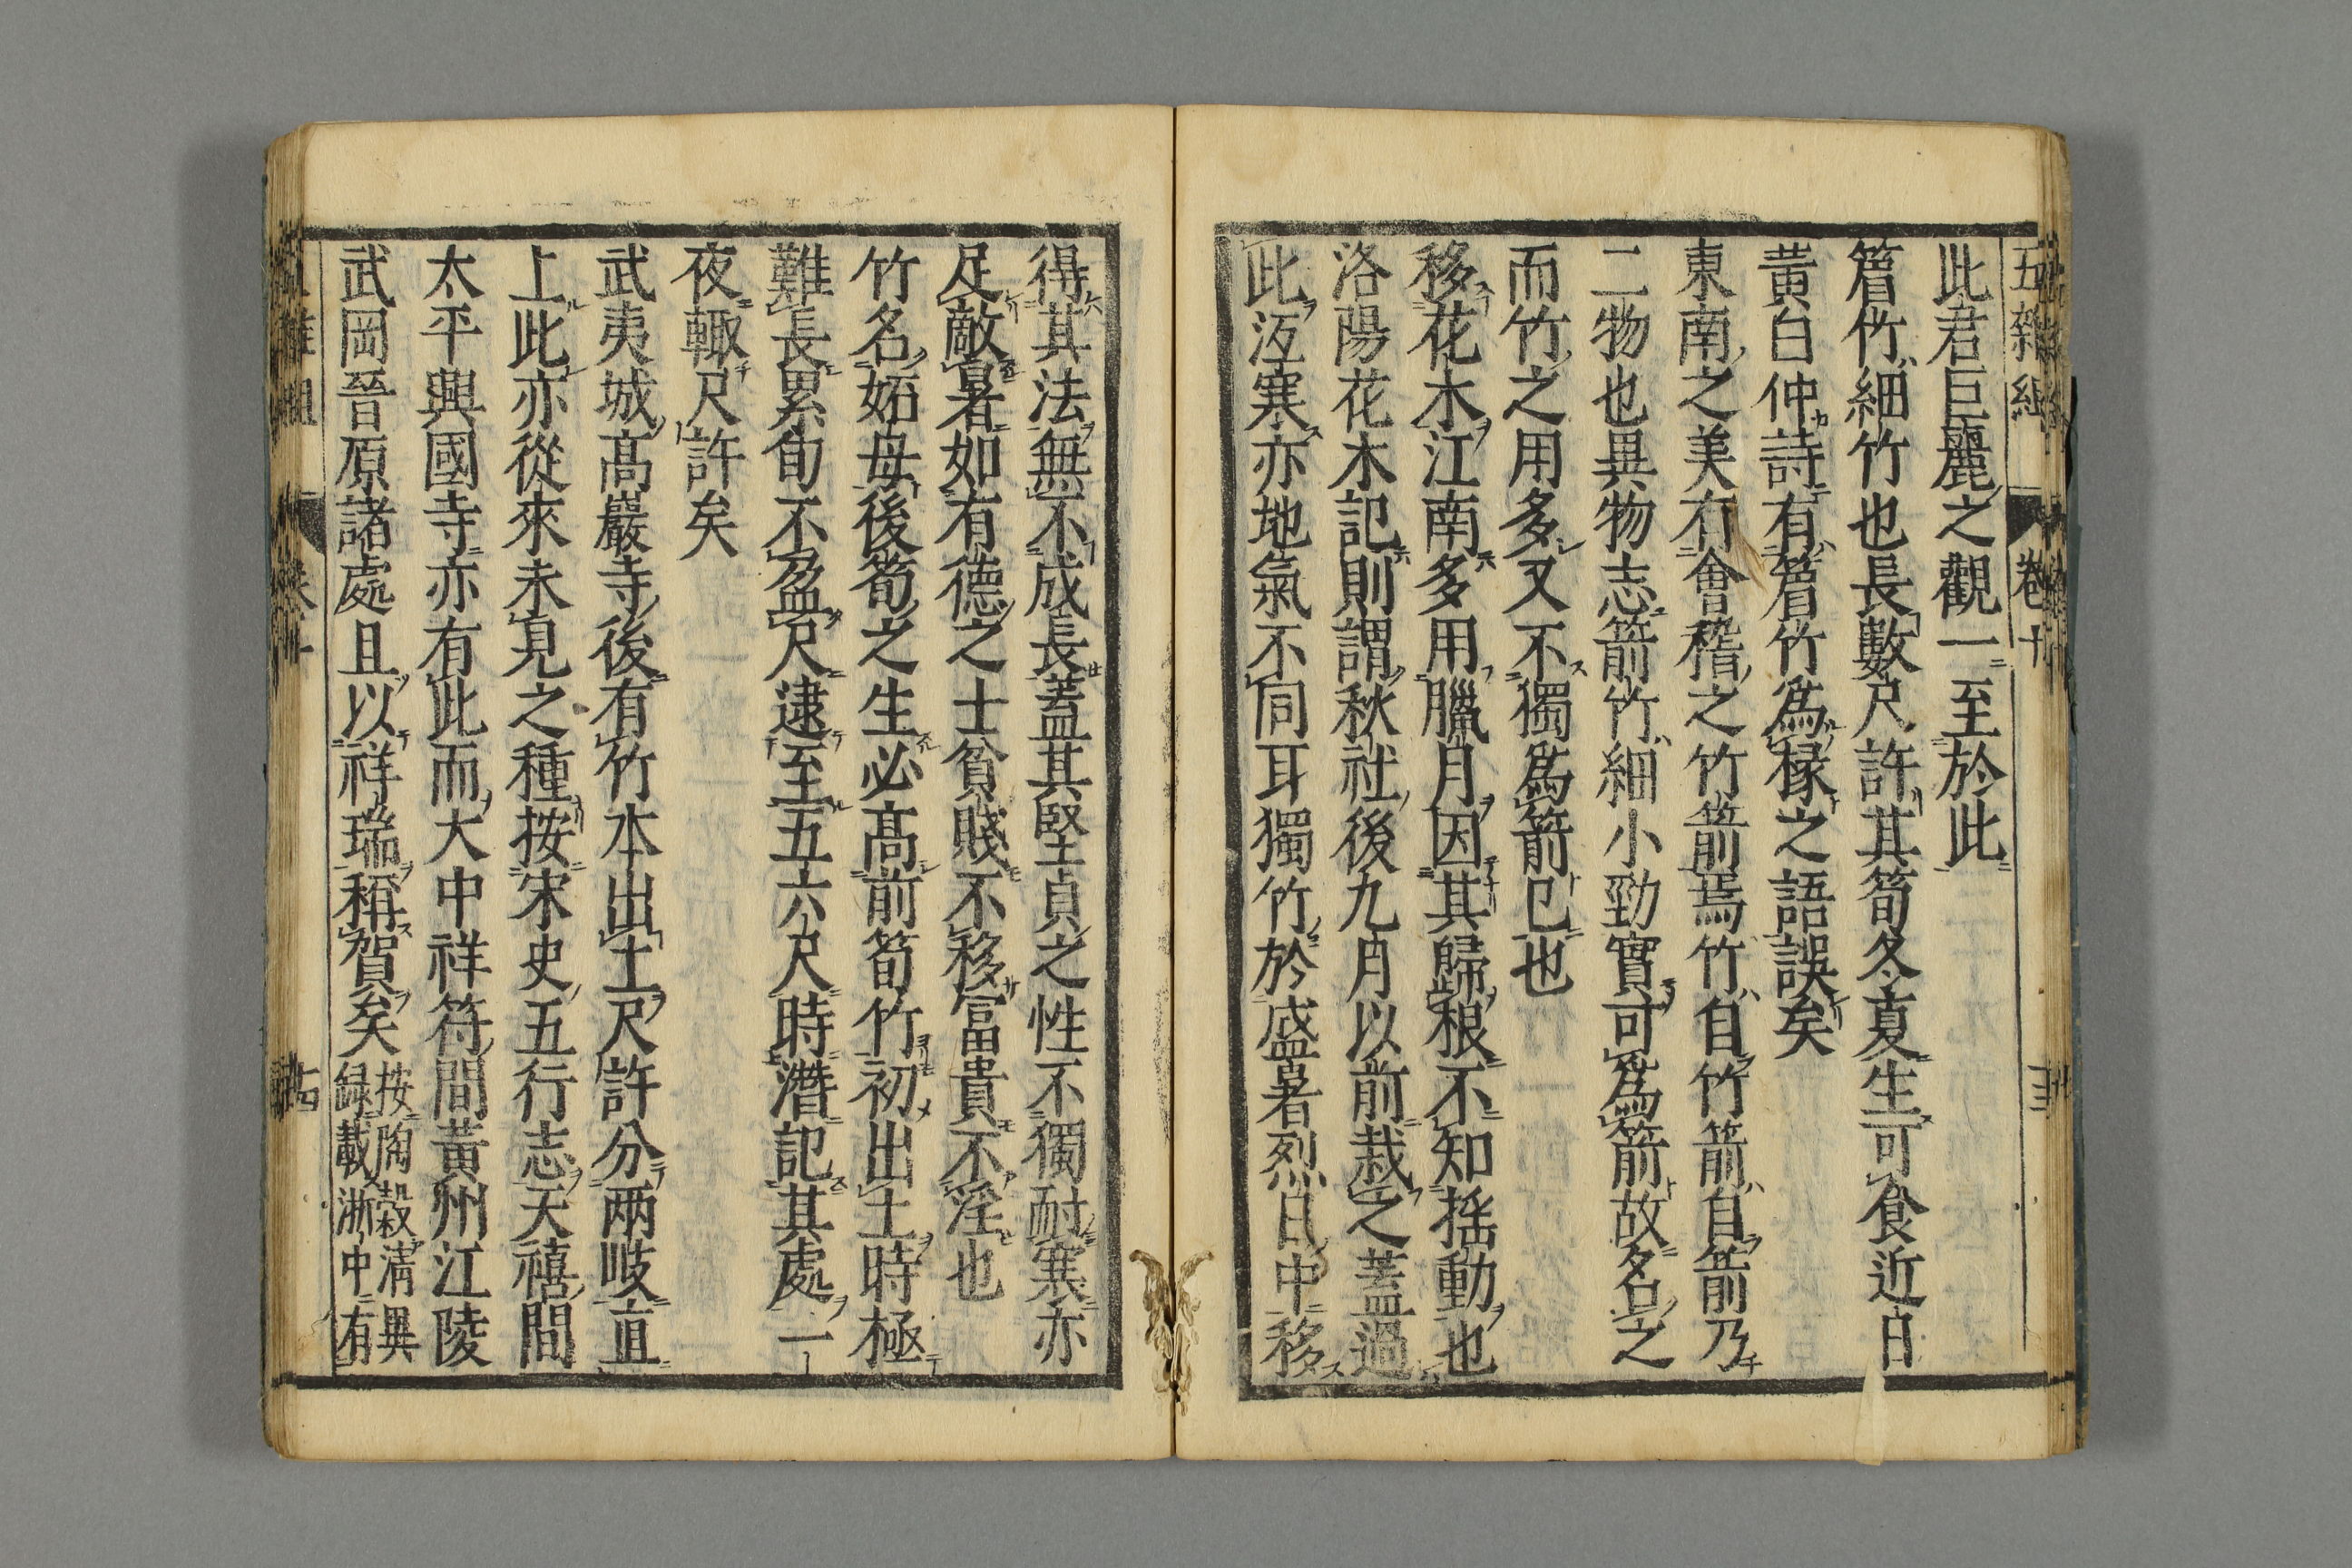 五雜組 卷十
此君巨麗之觀一至於此
䈞竹細竹也長數尺許其筍冬夏生可食近日
黃白仲詩有䈞竹為椽之語誤矣
東南之美有會稽之竹箭焉竹自竹箭自箭乃
二物也異物志箭竹細小勁實可為箭故名之
而竹之用多又不獨為箭已也
移花木江南多用臘月因其歸根不知搖動也
洛陽花木記則謂秋社後九月以前栽之蓋過
此沍寒亦地氣不同耳獨竹於盛暑烈日中移
得其法無不成長蓋其堅貞之性不獨耐寒亦
足敵暑如有德之士貧賤不移富貴不淫也
竹名妬母後筍之生必高前筍竹初出土時極
難長累旬不盈尺逮至五六尺時潛記其處一
夜輙尺許矣
武夷城高巖寺後有竹本出土尺許分兩岐直
上此亦從來未見之種按宋史五行志天禧間
太平興國寺亦有此而大中祥符間黃州江陵
武岡晉原諸處且以祥瑞稱賀矣 按陶穀清異
録載浙中有